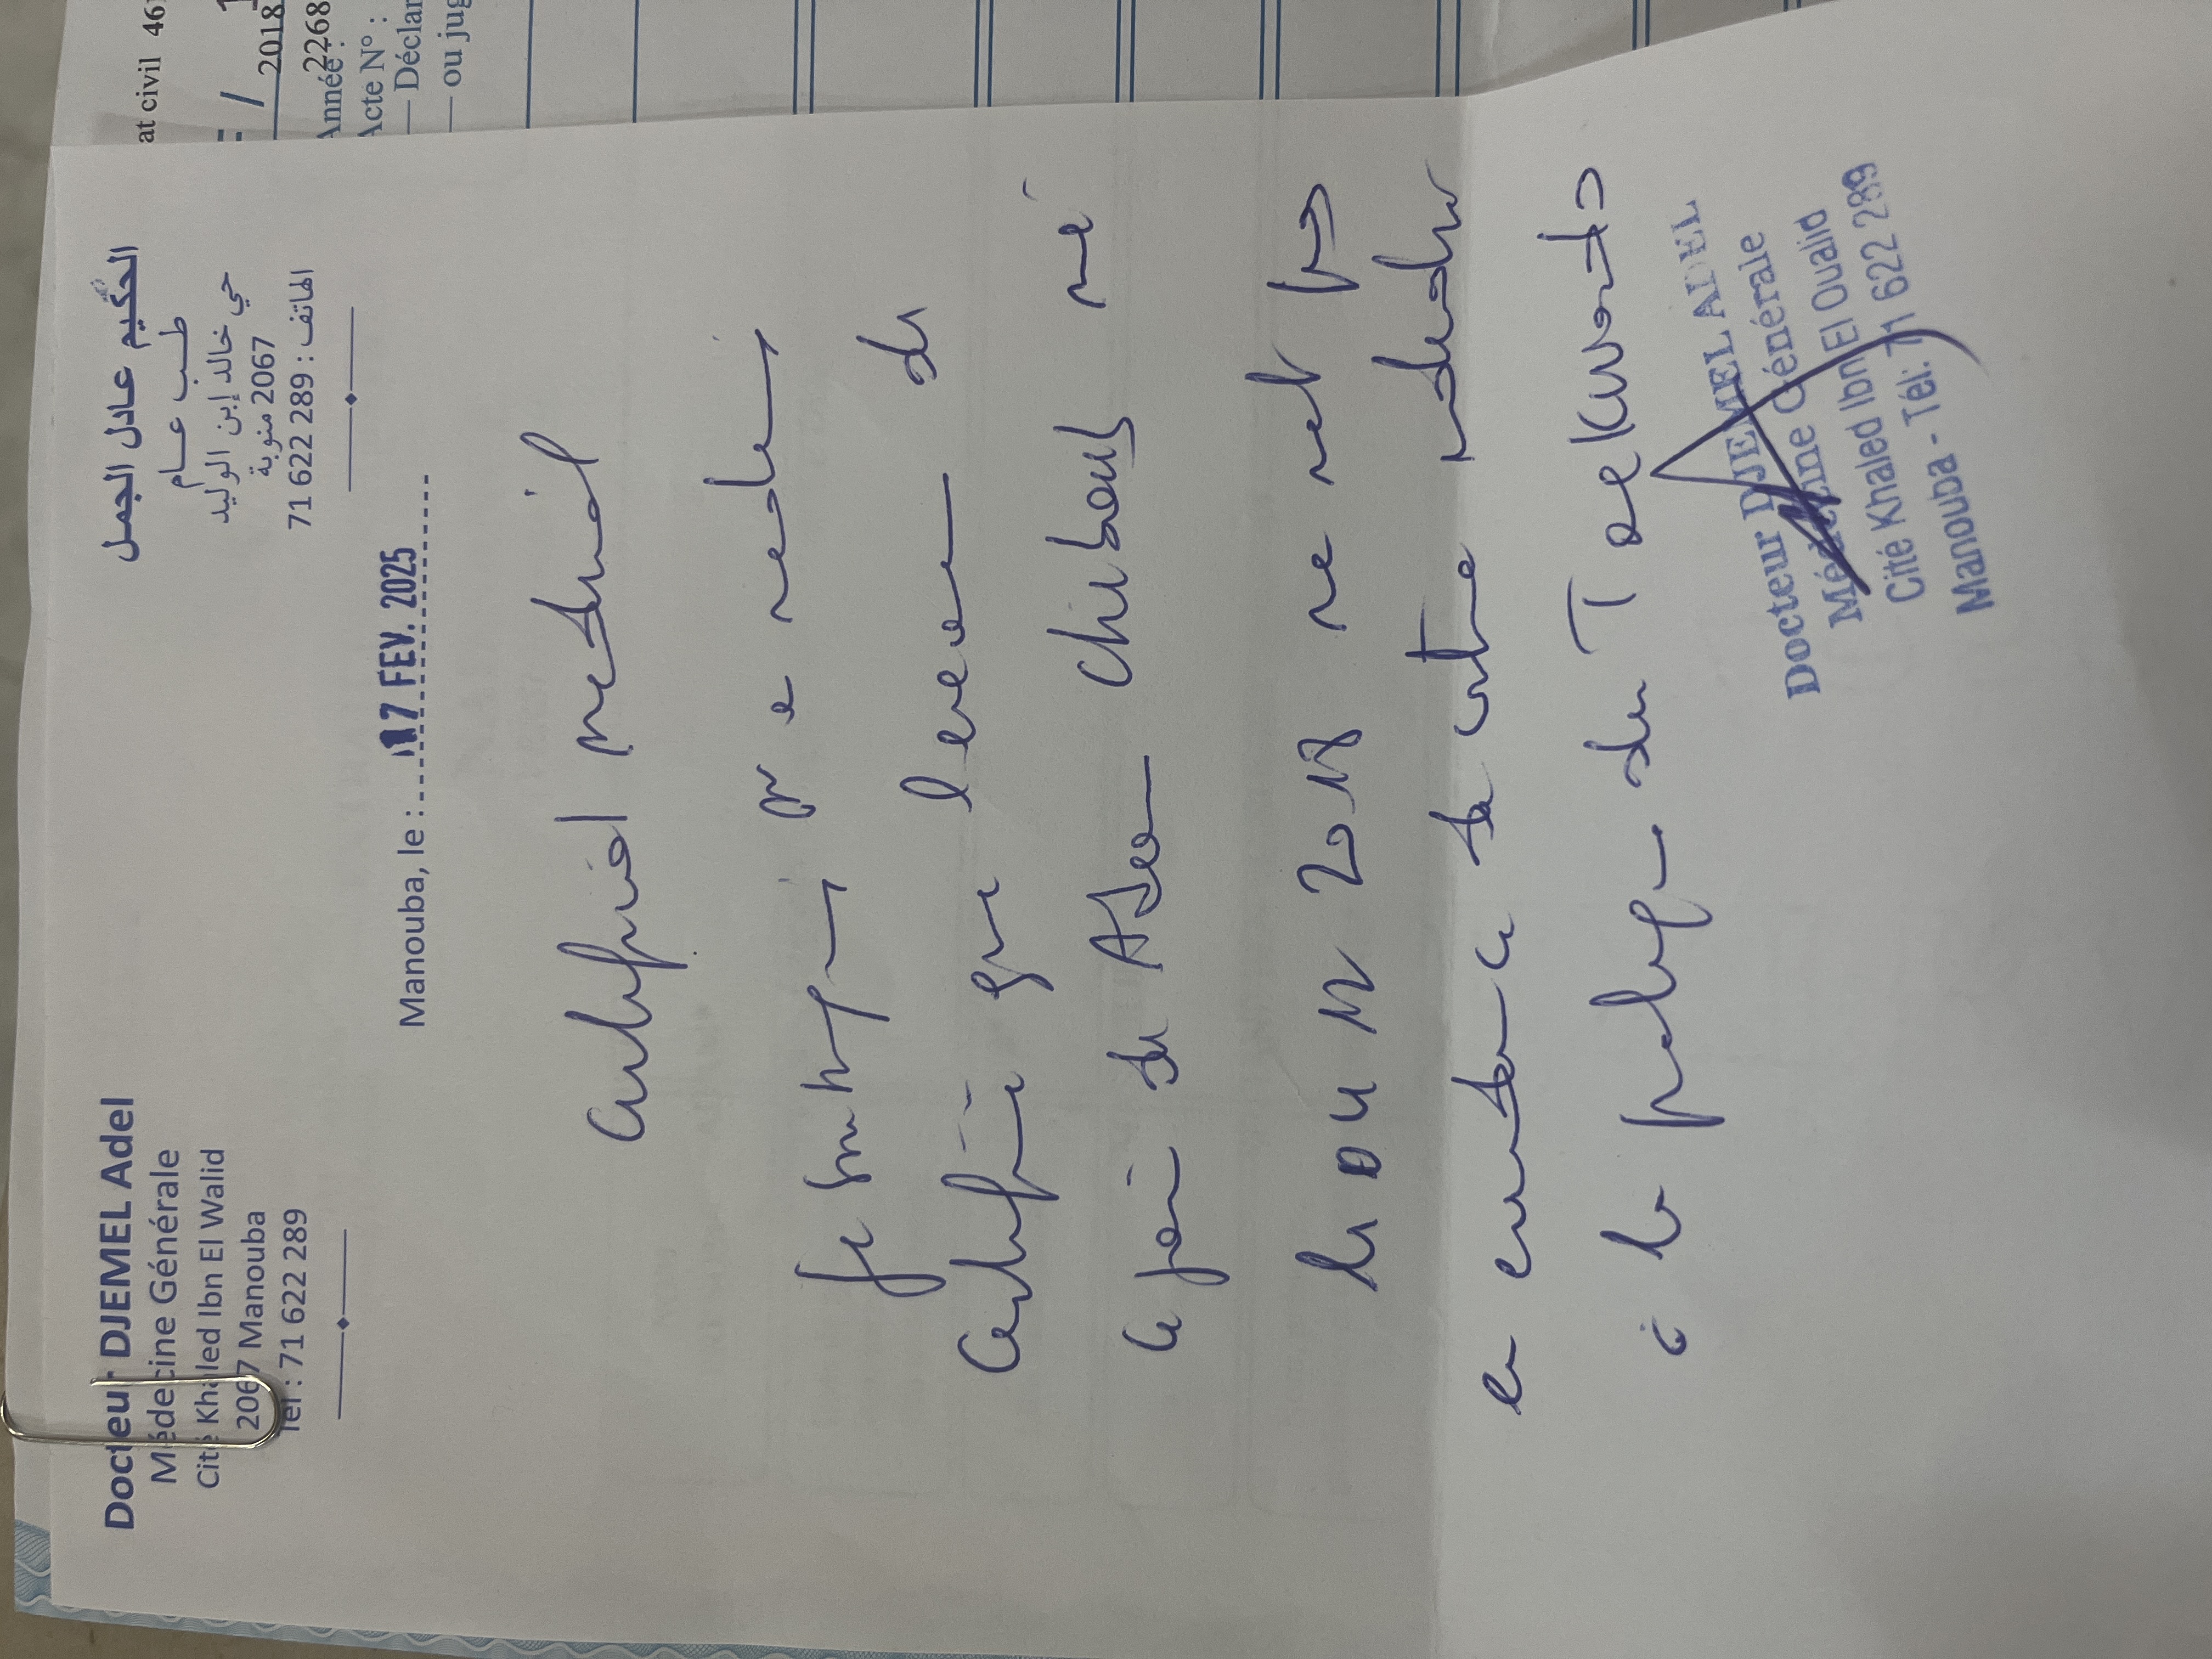 Docteur DJEMEL Adel
Médecine Générale
Cité Khaled Ibn El Walid
2067 Manouba
Tel : 71 622 289
الحكيم عادل الجمل
طب عام
حي خالد إبن الوليد
2067 منوبة
الهاتف : 71 622 289
Manouba, le : 17 FEV. 2025
Certificat médical
Je soussigné
certifie que l'examen de
ce jour de Adem né
le 04 12 2018 ne met pas
en évidence de contre
à la pratique du Taekwondo
Docteur DJEMEL ADEL
Médecine Générale
Cité Khaled Ibn El Oualid
Manouba - Tél: 71 622 289
at civil 461
2018
Année :
2268
Acte N° :
— Déclar
— ou jug